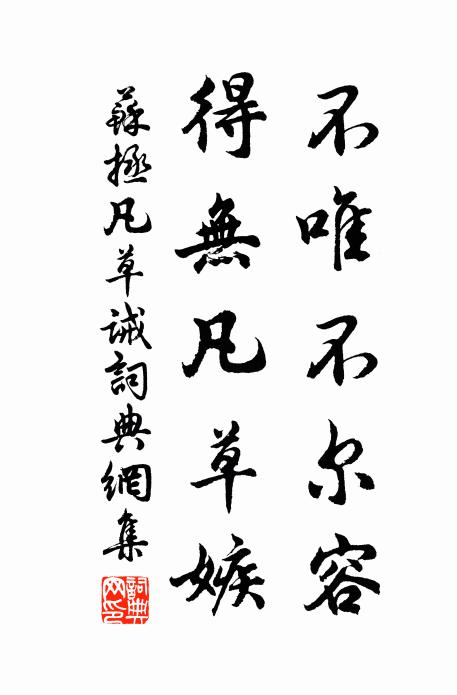 不唯不尔容
得無凡草嫉
蘇拯凡草誡詞典網集
詞典網印